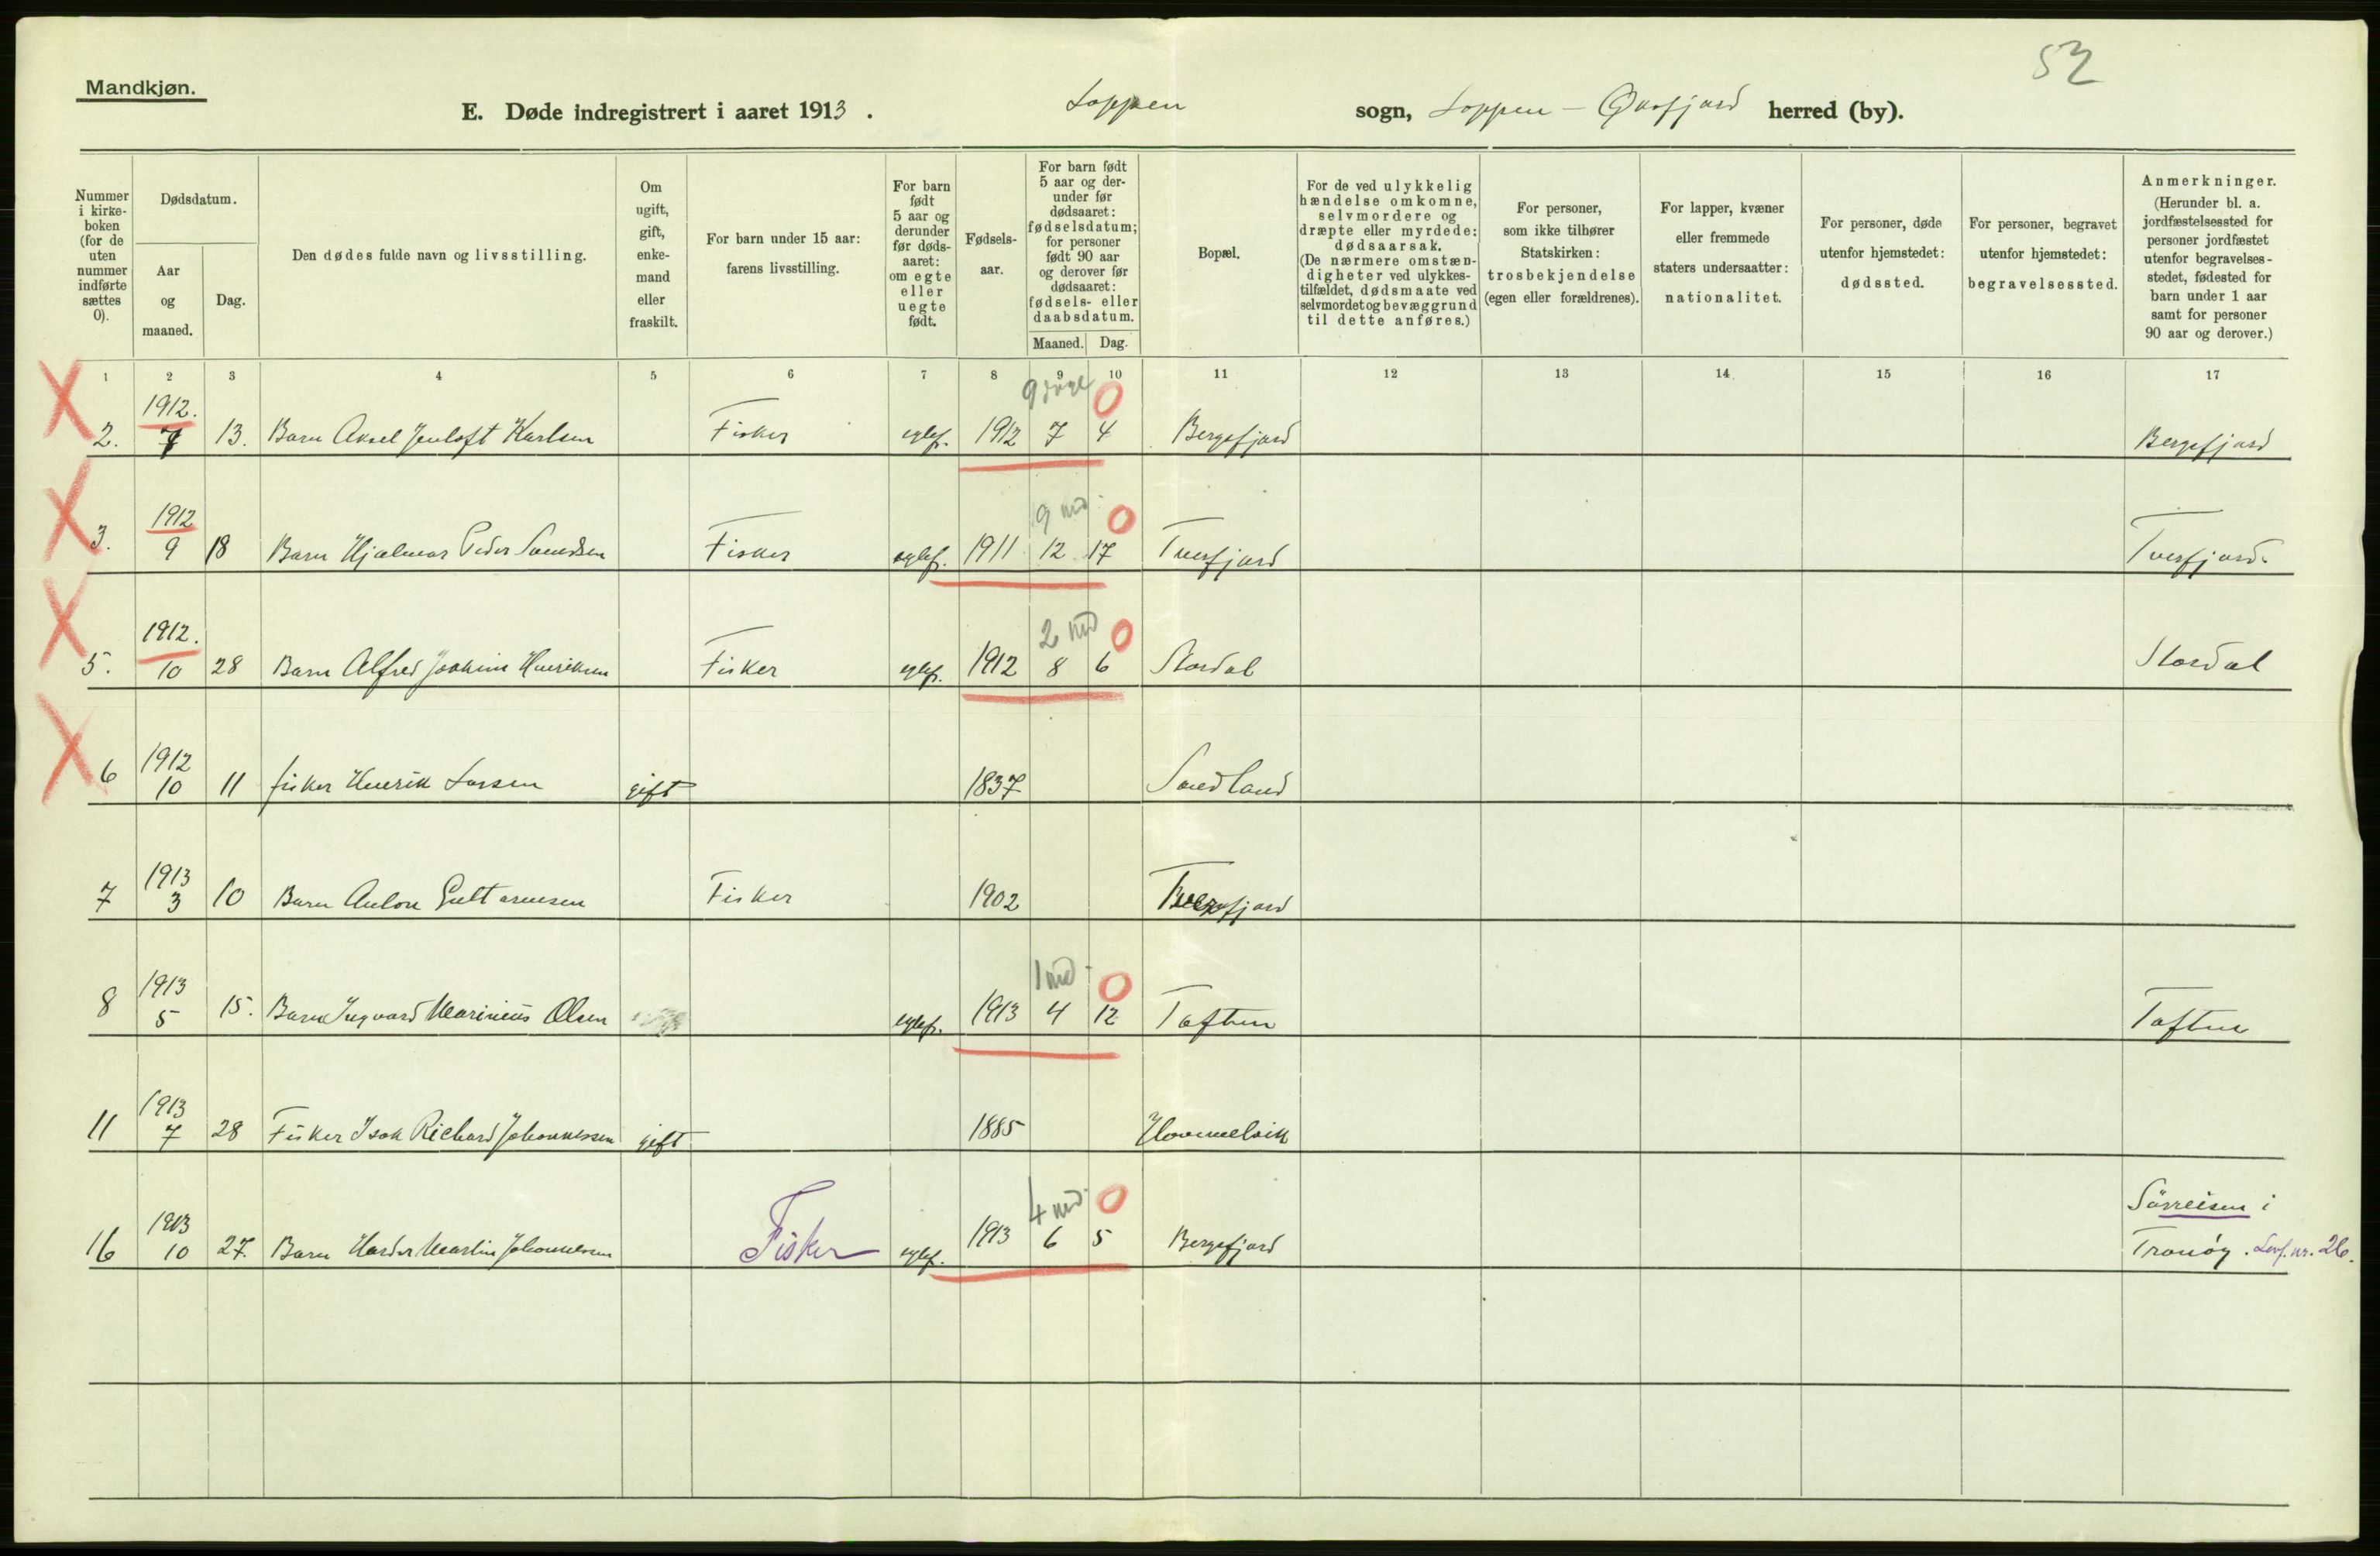 52
Mandkjøn.
E. Døde indregistrert i aaret 1913. Loppen sogn, Loppen - Øksfjord herred (by).
Nummer i kirke-boken (for de uten nummer indførte sættes 0).
Dødsdatum.
Aar og maaned.
Dag.
Den dødes fulde navn og livsstilling.
Om ugift, gift, enke-mand eller fraskilt.
For barn under 15 aar: farens livsstilling.
For barn født 5 aar og derunder før døds-aaret: om egte eller uegte født.
Fødsels-aar.
For barn født 5 aar og der-under før dødsaaret: fødselsdatum; for personer født 90 aar og derover før dødsaaret: fødsels- eller daabsdatum.
Maaned. Dag.
Bopæl.
For de ved ulykkelig hændelse omkomne, selvmordere og dræpte eller myrdede: dødsaarsak. (De nærmere omstæn-digheter ved ulykkes-tilfældet, dødsmaate ved selvmordet og bevæggrund til dette anføres.)
For personer, som ikke tilhører Statskirken: trosbekjendelse (egen eller forældrenes).
For lapper, kvæner eller fremmede staters undersaatter: nationalitet.
For personer, døde utenfor hjemstedet: dødssted.
For personer, begravet utenfor hjemstedet: begravelsessted.
Anmerkninger. (Herunder bl. a. jordfæstelsessted for personer jordfæstet utenfor begravelses-stedet, fødested for barn under 1 aar samt for personer 90 aar og derover.)
1 2 3 4 5 6 7 8 9 10 11 12 13 14 15 16 17
1912. 9 dage 0
2. 7 13. Barn Aksel Jenloft Karlsen Fisker egtef. 1912 7 4 Bergsfjord Bergsfjord
1912 9 md. 0
3. 9 18 Barn Hjalmar Peder Fisker egtef. 1911 12 17 Tverfjord Tverfjord.
1912. 2 md 0
5. 10 28 Barn Alfred Joakim Henriksen Fisker egtef. 1912 8 6 Stordal Stordal
1912
6 10 11 fisker Henrik Larsen gift 1837 Sandland
1913
7 3 10 Barn Anton Fisker 1902
1913 1 md 0
8 5 15. Barn Ingvard Marinius Olsen egtef. 1913 4 12 Toften Toften
1913
11 7 28 Fisker Isak Richard Johannessen gift 1885 Hommelvik
1913 4 md 0 Sörreisen i
16 10 27. Barn Martin Johannessen Fisker egtef. 1913 6 5 Bergsfjord Tranöy. Levf. nr. 26.